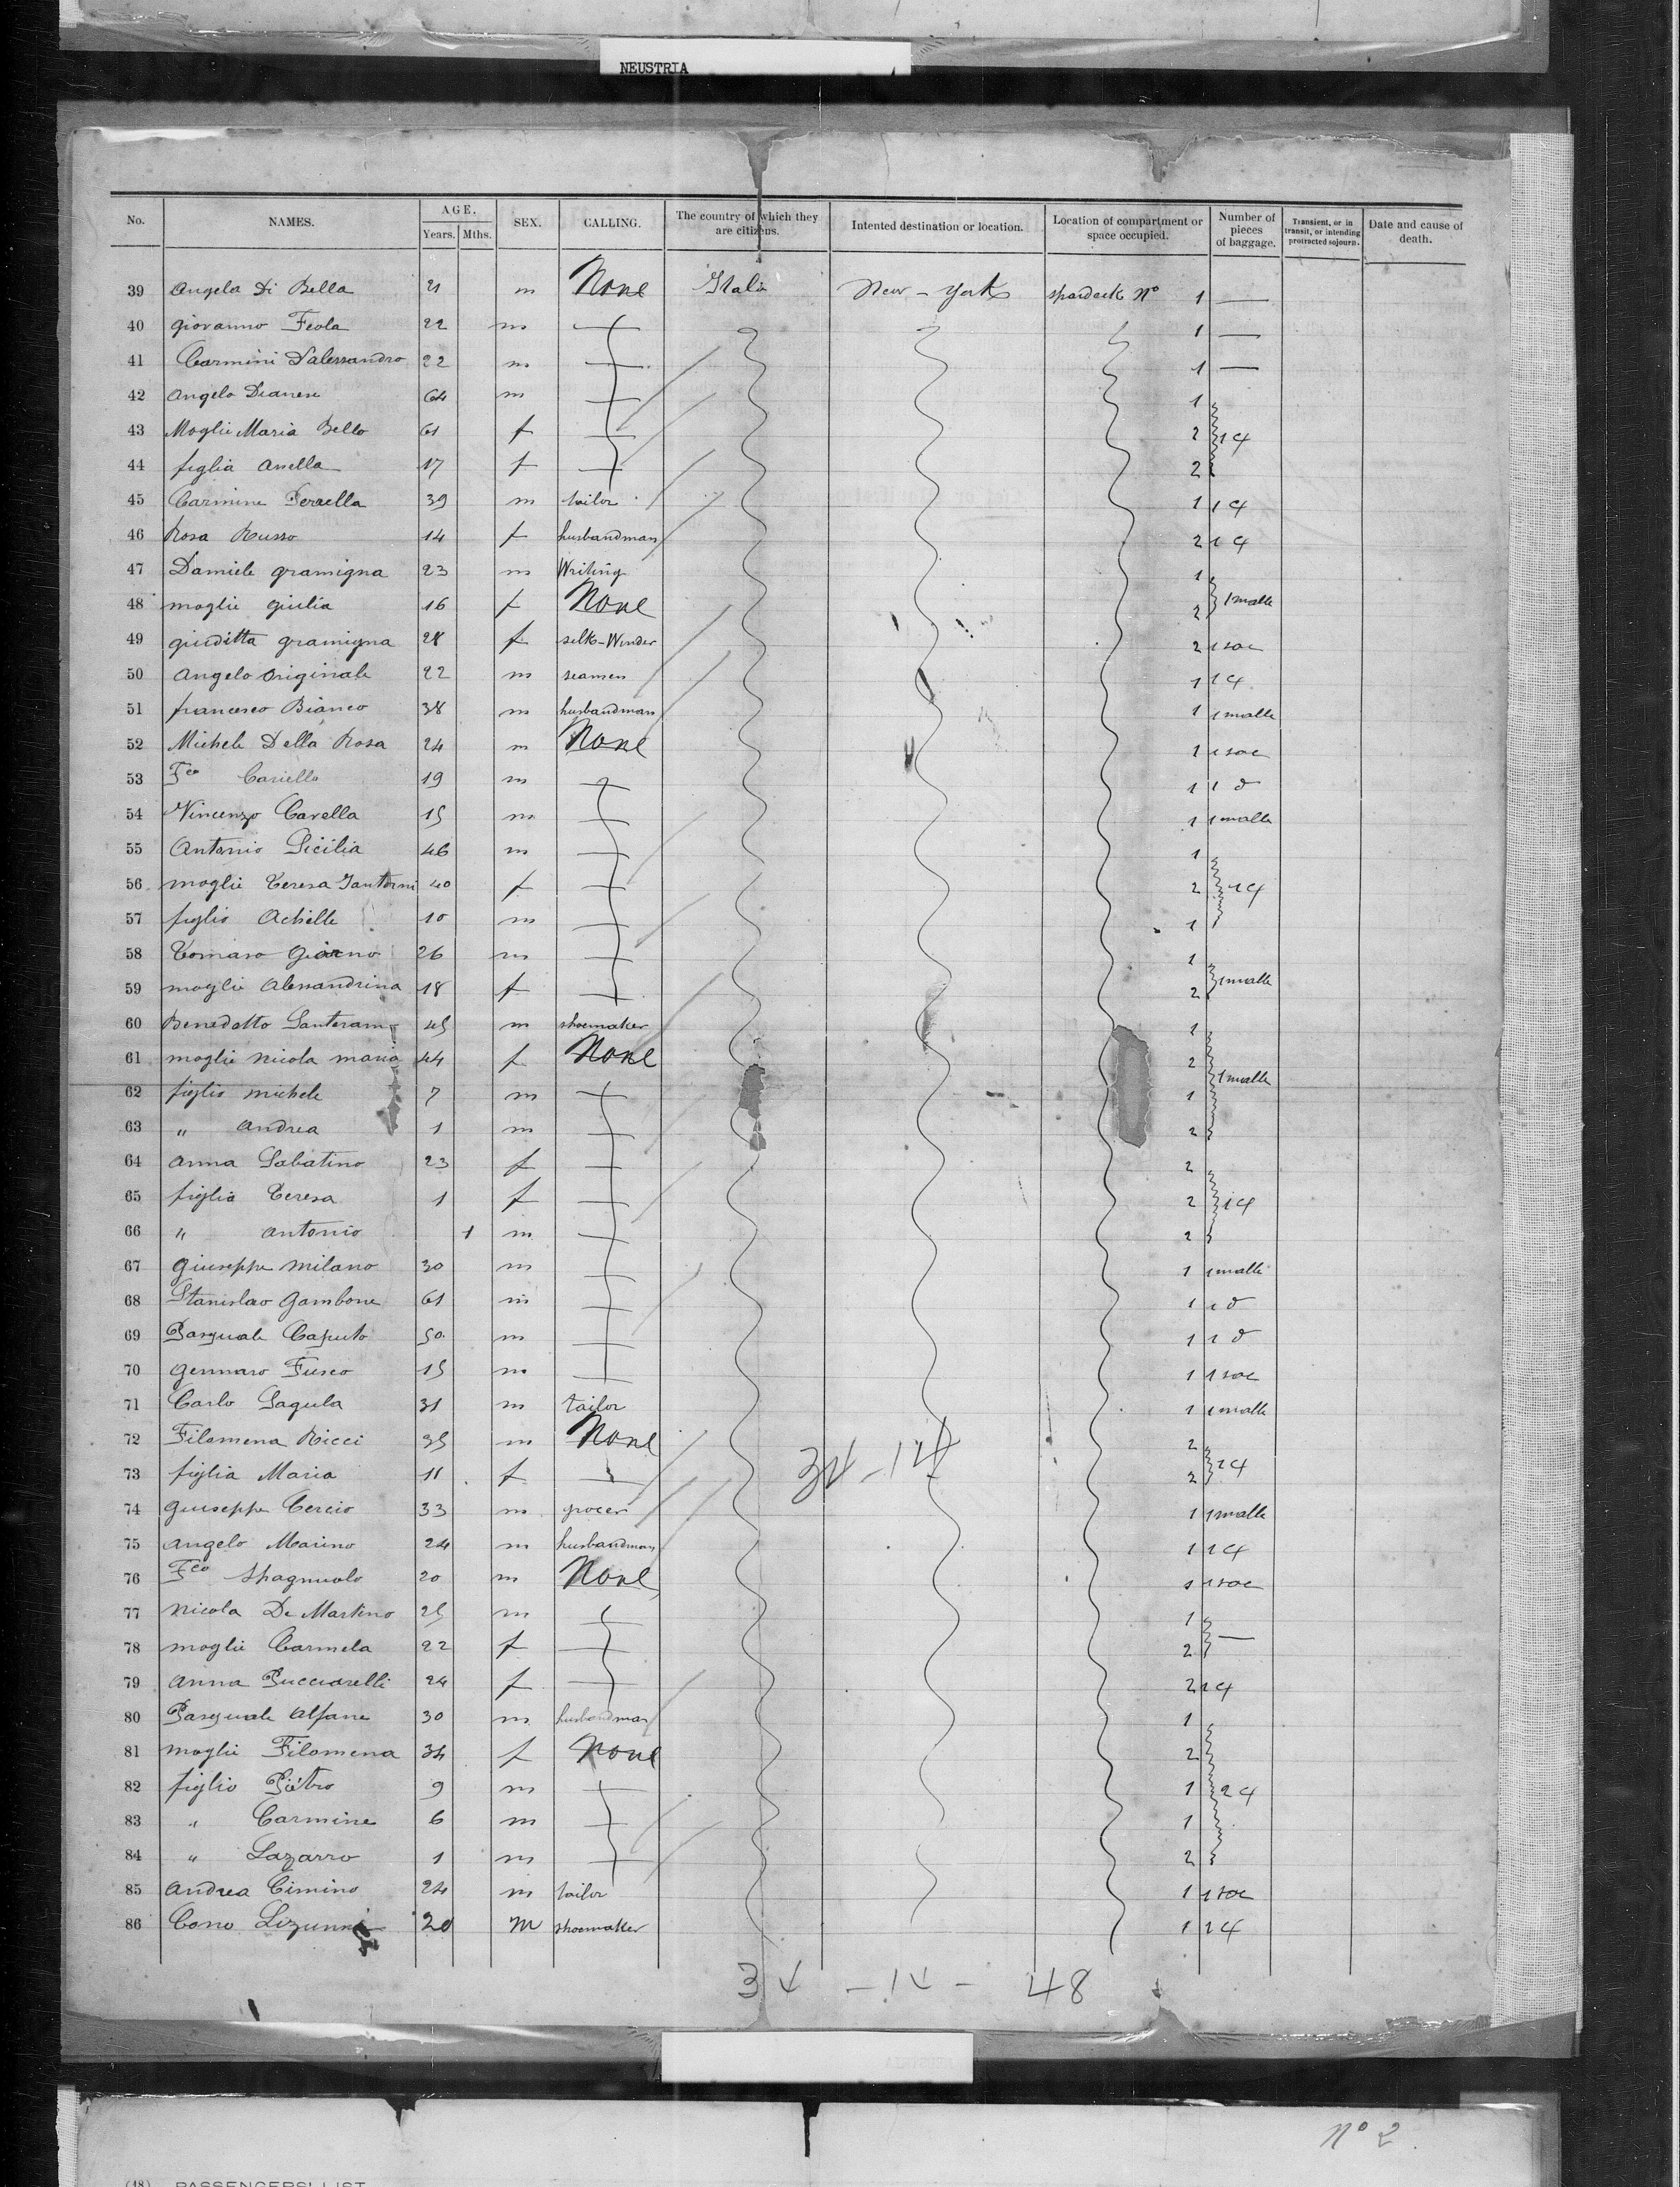 NEUSTRIA
No. NAMES. AGE. Years. Mths. SEX. CALLING. The country of which they are citizens. Intented destination or location. Location of compartment or space occupied. Number of pieces of baggage. Transient, or in transit, or intending protracted sojourn. Date and cause of death.
39 Angela Di Bella 21 m None Italia New-York spardeck No 1 —
40 giovanno Feola 22 m 1 —
41 Carmini D'alessandro 22 m 1 —
42 Angelo Dianese 64 m 1
43 Moglie Maria Bello 61 f 2 1 4
44 figlia Anella 17 f 2
45 Carmine Perrella 39 m tailor 1 1 4
46 Rosa Russo 14 f husbandman 2 1 4
47 Damiele gramigna 23 m Writing 1
48 moglie giulia 16 f None 2 1 malle
49 giuditta gramigna 28 f silk-Winder 2 1 sac
50 Angelo originale 22 m seamen 1 1 4
51 francesco Bianco 38 m husbandman 1 1 malle
52 Michele Della Rosa 24 m None 1 1 sac
53 Fco Cariello 19 m 1 1 d
54 Vincenzo Cavella 15 m 1 1 malle
55 Antonio Sicilia 46 m 1
56 moglie Teresa Santorni 40 f 2 1 4
57 figlio Achille 10 m 1
58 Tomaso giorno 26 m 1
59 moglie Alessandrina 18 f 2 1 malle
60 Benedetto Santeramo 45 m shoemaker 1
61 moglie nicola maria 44 f None 2
62 figlio michele 7 m 1 1 malle
63 " andrea 1 m 2
64 anna Sabatino 23 f 2
65 figlia Teresa 1 f 2 1 4
66 " antonio 1 m 2
67 giuseppe milano 30 m 1 1 malle
68 Stanislao gambone 61 m 1 1 d
69 Pasquale Caputo 50 m 1 1 d
70 gennaro Fusco 15 m 1 1 sac
71 Carlo Sagula 31 m tailor 1 1 malle
72 Filomena Ricci 35 m None 2
73 figlia Maria 11 f 2 1 4
34-14
74 giuseppe Cercio 33 m grocer 1 1 malle
75 angelo Marino 24 m husbandman 1 1 4
76 Fco Spagnuolo 20 m None 1 1 sac
77 nicola De Martino 25 m 1
78 moglie Carmela 22 f 2 —
79 anna Pucciarelli 24 f 2 1 4
80 Pasquale Alfane 30 m husbandman 1
81 moglie Filomena 34 f None 2
82 figlio Piétro 9 m 1 2 4
83 " Carmine 6 m 1
84 " Lazarro 1 m 2
85 andrea Cimino 24 m tailor 1 1 sac
86 Cono 20 m shoemaker 1 2 4
34 - 14 - 48
No 2
(48) PASSENGERS' LIST